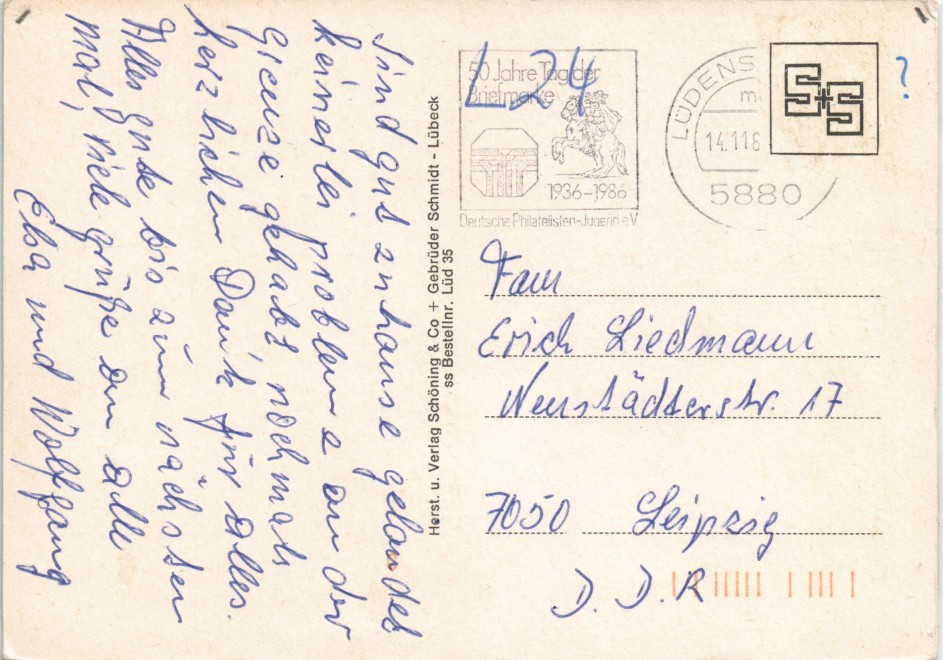 Sind gut zuhause gelandet
keinerlei probleme an der
Grenze gehabt nochmals
herzlichen Dank für alles.
Alles gute bis zum nächsten
mal, viele grüße an alle
Elsa und Wolfgang
Herst. u. Verlag Schöning & Co + Gebrüder Schmidt - Lübeck
ss Bestellnr. Lüd 35
L24
50 Jahre Tag der
Briefmarke
1936-1986
Deutsche Philatelisten-Jugend e.V.
LÜDENS
14.11.8
5880
S+S
?
Fam
Erich Liedmann
Neustädterstr. 17
7050 Leipzig
D.D.R